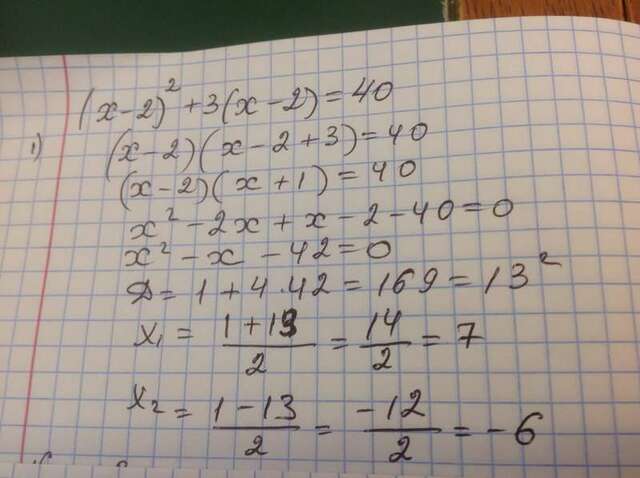 (x-2)² + 3(x-2) = 40
1) (x-2)(x-2+3) = 40
(x-2)(x+1) = 40
x² - 2x + x - 2 - 40 = 0
x² - x - 42 = 0
D = 1 + 4·42 = 169 = 13²
x₁ = (1+13)/2 = 14/2 = 7
x₂ = (1-13)/2 = -12/2 = -6